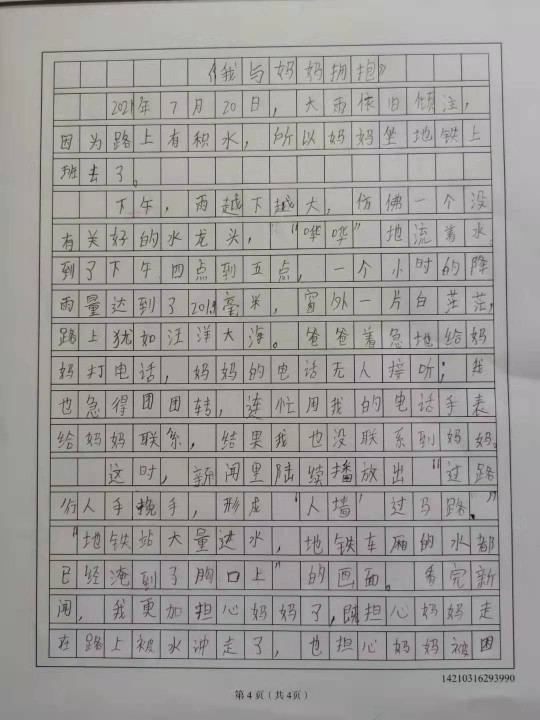 《我与妈妈拥抱》
2021年7月20日，大雨依旧倾注，
因为路上有积水，所以妈妈坐地铁上
班去了。
下午，雨越下越大，仿佛一个没
有关好的水龙头，“哗哗”地流着水。
到了下午四点到五点，一个小时的降
雨量达到了201.9毫米，窗外一片白茫茫，
路上犹如汪洋大海。爸爸着急地给妈
妈打电话，妈妈的电话无人接听；我
也急得团团转，连忙用我的电话手表
给妈妈联系，结果我也没联系到妈妈。
这时，新闻里陆续播放出“过路
行人手挽手，形成“人墙”过马路。”
“地铁站大量进水，地铁车厢的水都
已经淹到了胸口上”的画面。看完新
闻，我更加担心妈妈了，既担心妈妈走
在路上被水冲走了，也担心妈妈被困
14210316293990
第4页（共4页）